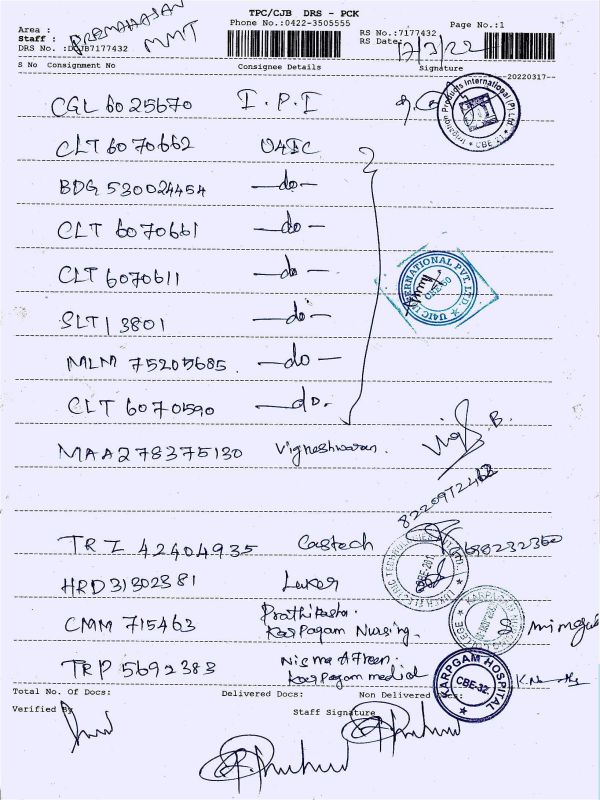 TPC/CJB DRS - PCK
Area : Phone No.:0422-3505555 Page No.:1
Staff : PREMAHASAN RS No.:7177432
MMT RS Date: 17/3/22
DRS No. :DCJB7177432
S No Consignment No Consignee Details Signature
--20220317--
CGL 6025670 I.P.I
Irrigation Products International (P) Ltd
CBE-27
CLT 6070662 UAIC
BDG 530024454 -do-
CLT 6070661 -do-
CLT 6070611 -do-
UAIC INTERNATIONAL PVT. LTD.
SLT 13801 -do-
MLM 75205685 -do-
CLT 6070590 -do.
MAA278375130 Vigneshwaran.
TRI 42404935 Castech
HRD31302381
CMM 715463
Karpagam Nursing.
TRP 5692383
Karpagam medical
KARPGAM HOSPITAL
CBE-32
Total No. Of Docs: Delivered Docs: Non Delivered Docs:
Verified By Staff Signature